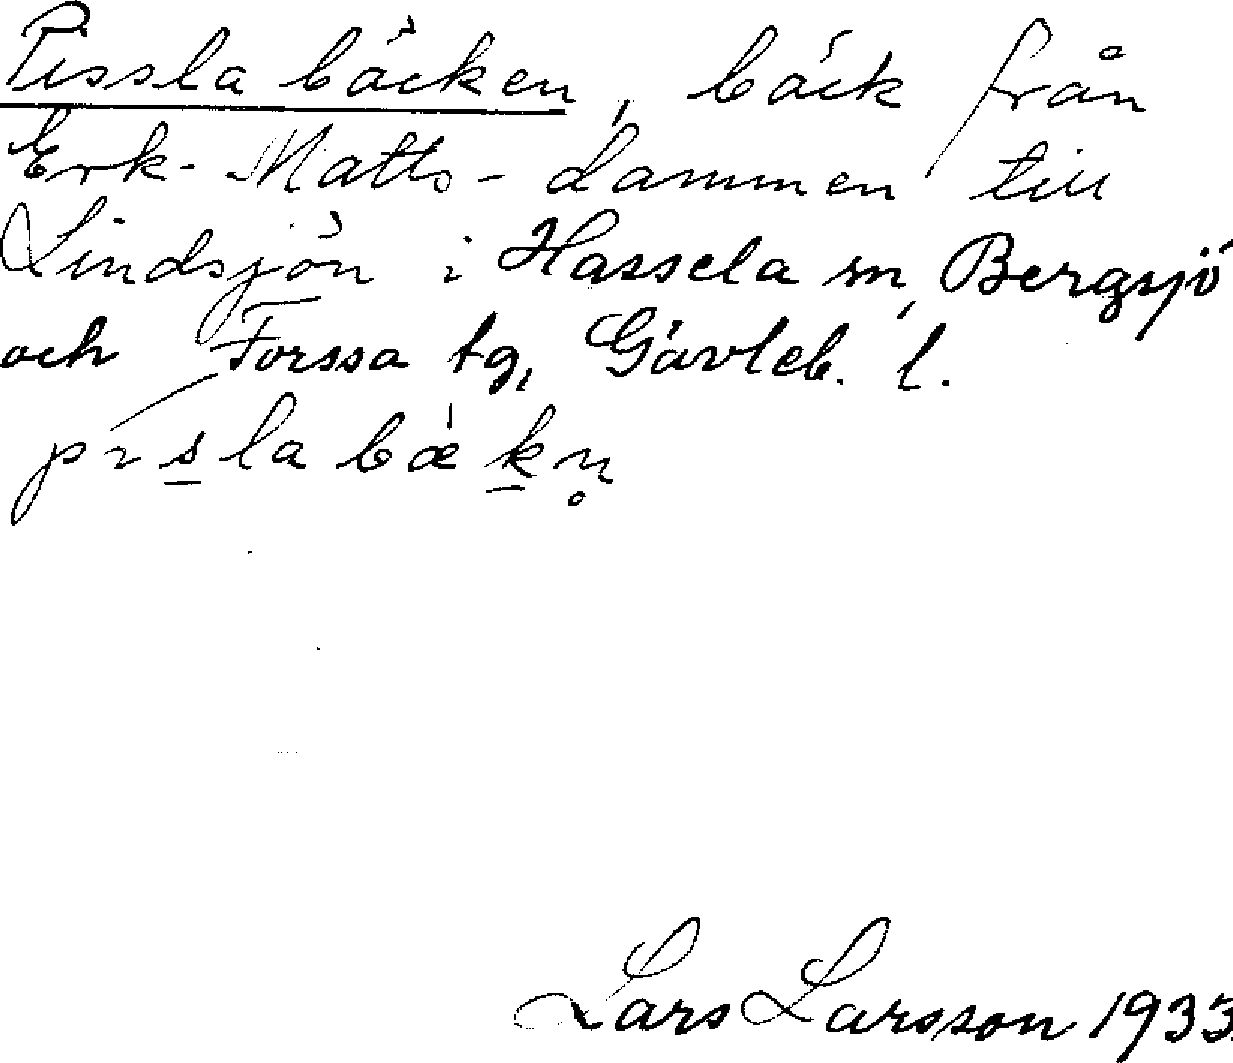 Pissla bäcken, bäck från
Erk-Matts-dammen till
Lindsjön i Hassela sn, Bergsjö
och Forssa tg, Gävleb. l.
pı́s̲la bæ̀k̲n̥
Lars Larsson 1933